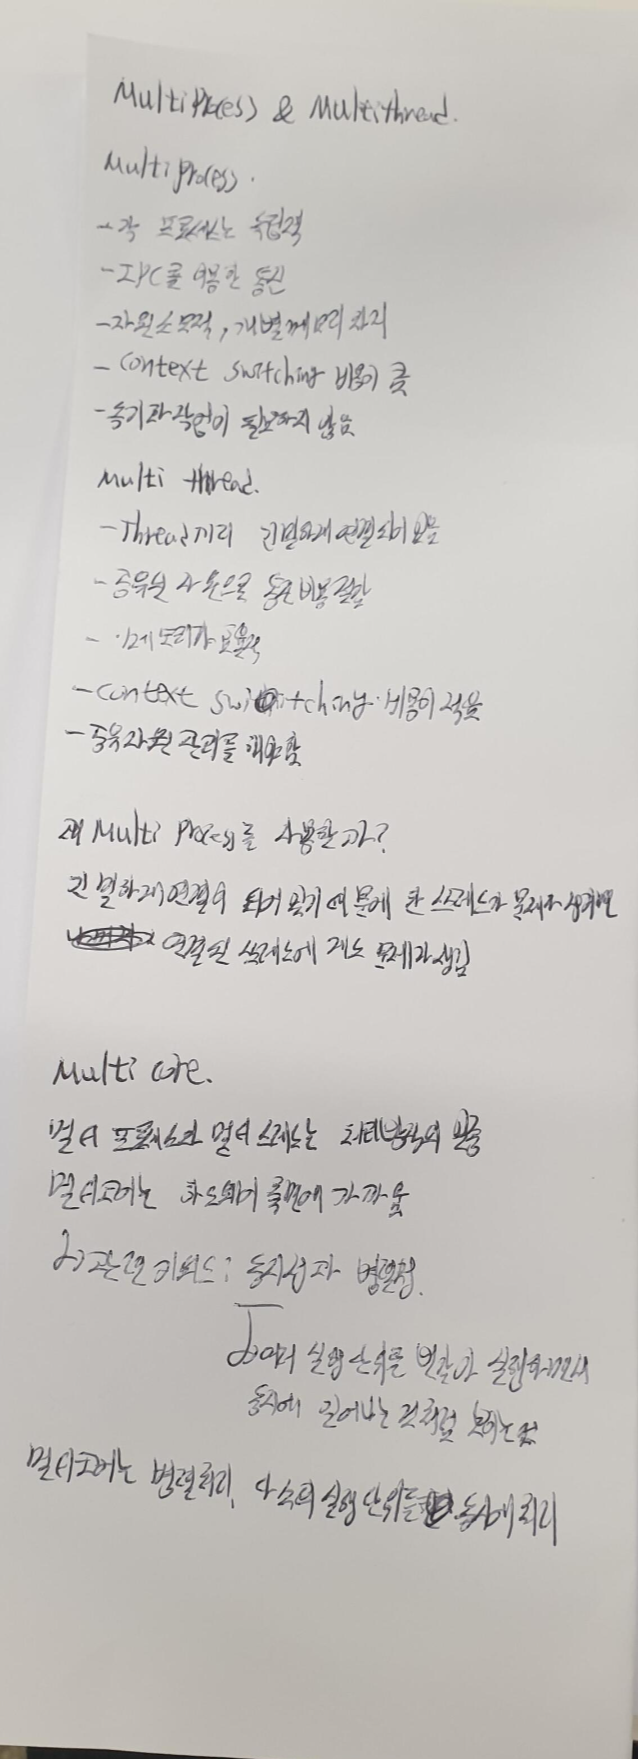 MultiProcess & Multithread.
Multiprocess.
- 각 프로세스는 독립적
- IPC를 이용한 통신
- 자원 소모적, 개별 메모리 차지
- Context switching 비용이 큼
- 동기화 작업이 필요하지 않음
Multi thread.
- Thread끼리 긴밀하게 연결되어 있음
- 공유된 자원으로 통신비용 절감
- 메모리가 효율적
- Context switching 비용이 적음
- 공유자원 관리를 해야함
왜 Multi Process를 사용할까?
긴밀하게 연결이 되어 있기 때문에 한 스레드가 문제가 생기면
연결된 스레드에게도 문제가 생김
Multi core.
멀티 프로세스와 멀티스레드는 처리방식의 일종
멀티코어는 하드웨어 측면에 가까움
관련 키워드: 동시성과 병렬성.
여러 실행 단위를 번갈아 실행하면서
동시에 일어나는 것처럼 보이는 것
멀티코어는 병렬처리, 다수의 실행 단위를 동시에 처리